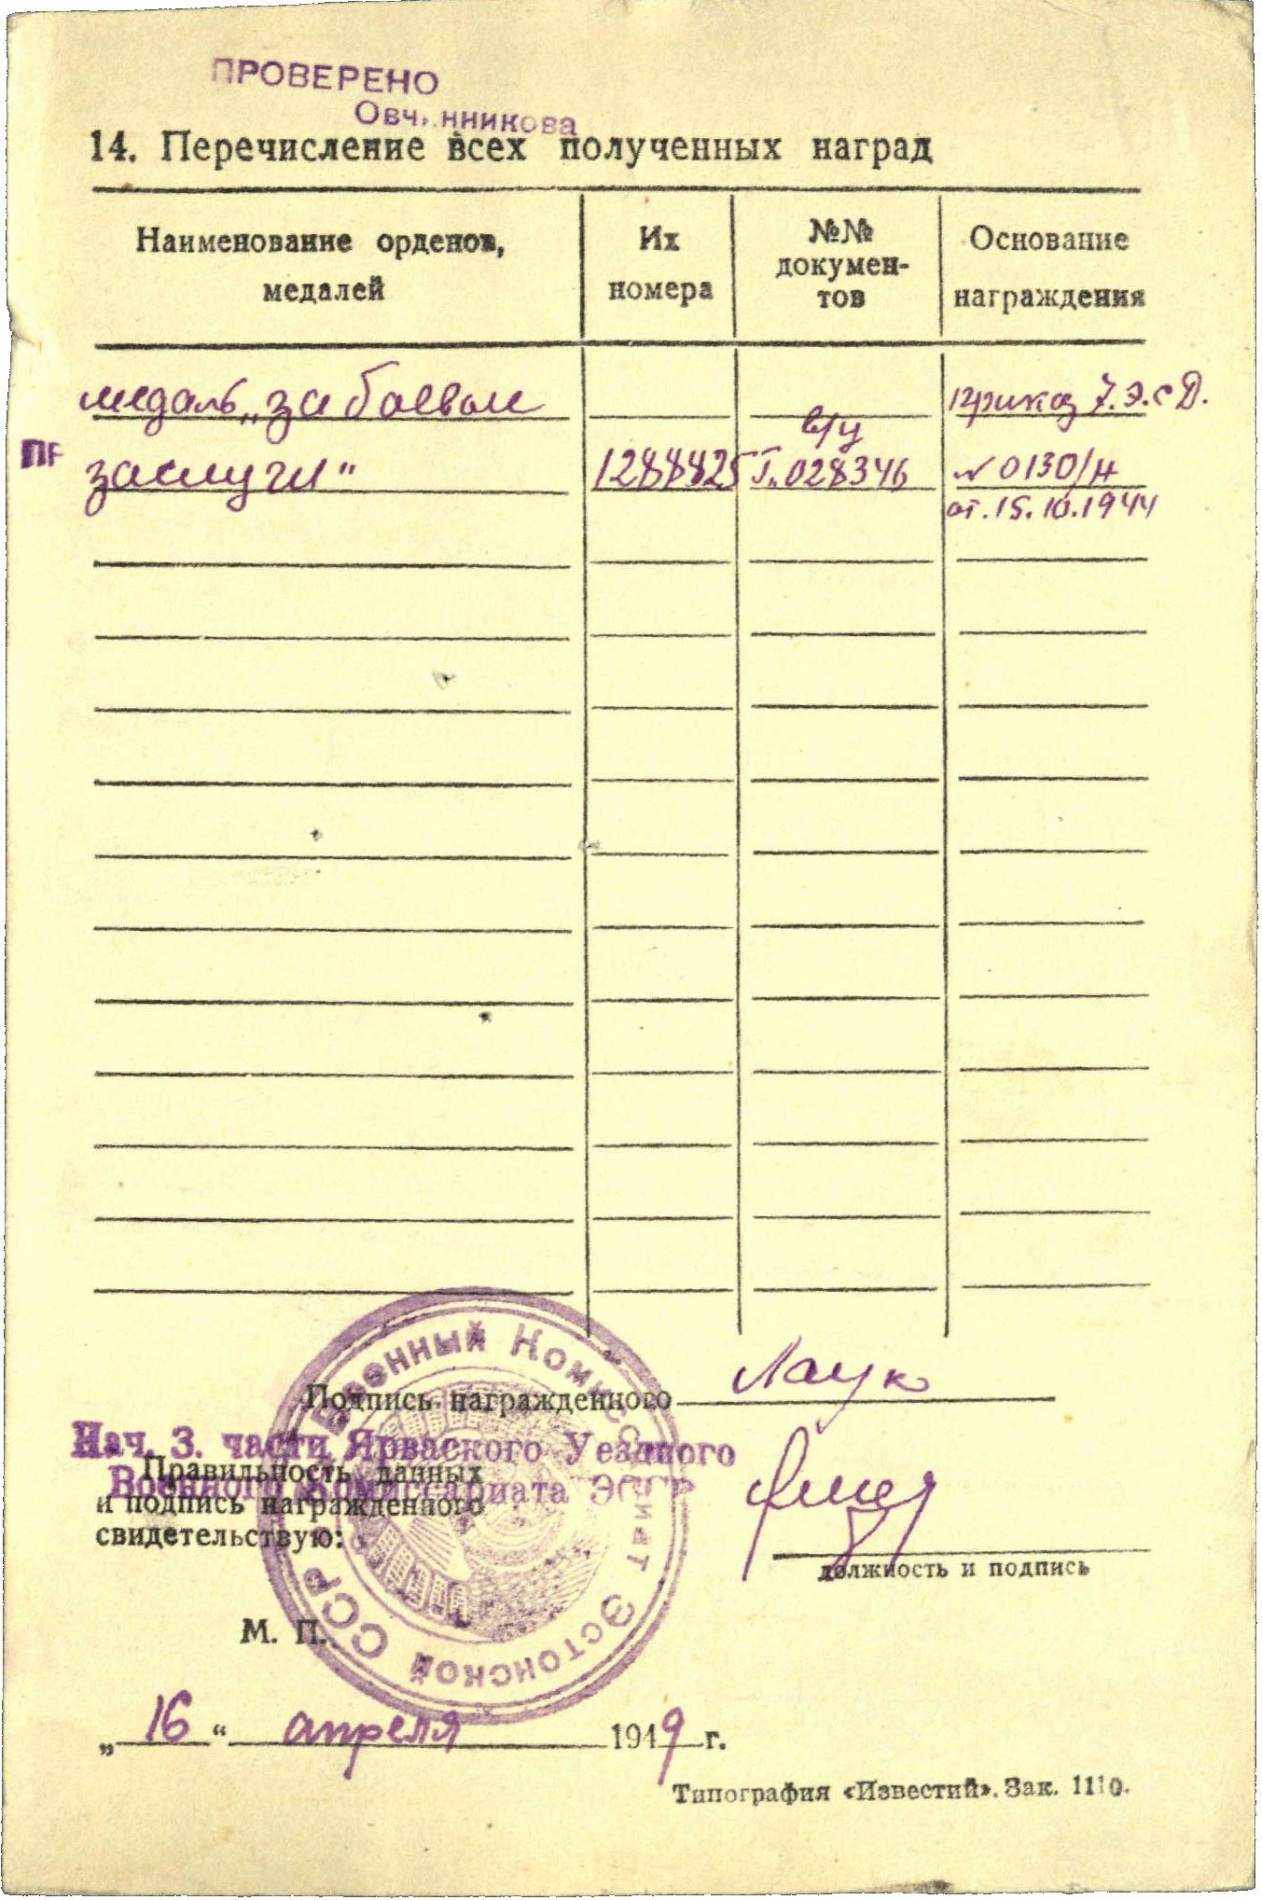 ПРОВЕРЕНО
Овчинникова
14. Перечисление всех полученных наград
Наименование орденов,
медалей
Их
номера
№№
докумен-
тов
Основание
награждения
медаль „за боевые
заслуги“
1288825
в/у
Г. 028346
приказ 7.Э.С.Д.
№ 0130/н
от. 15.10.1944
ПР
Подпись награжденного Лаук
Нач. 3. части Ярваского Уездного
Военного Комиссариата ЭССР
Правильность данных
и подпись награжденного
свидетельствую:
должность и подпись
М. П.
Военный Комиссариат Эстонской ССР
„16“ апреля 1949 г.
Типография «Известий». Зак. 1110.